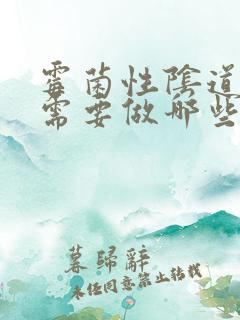 霉菌性陰道
需要做哪些
暮歸辭
未经同意禁止转载